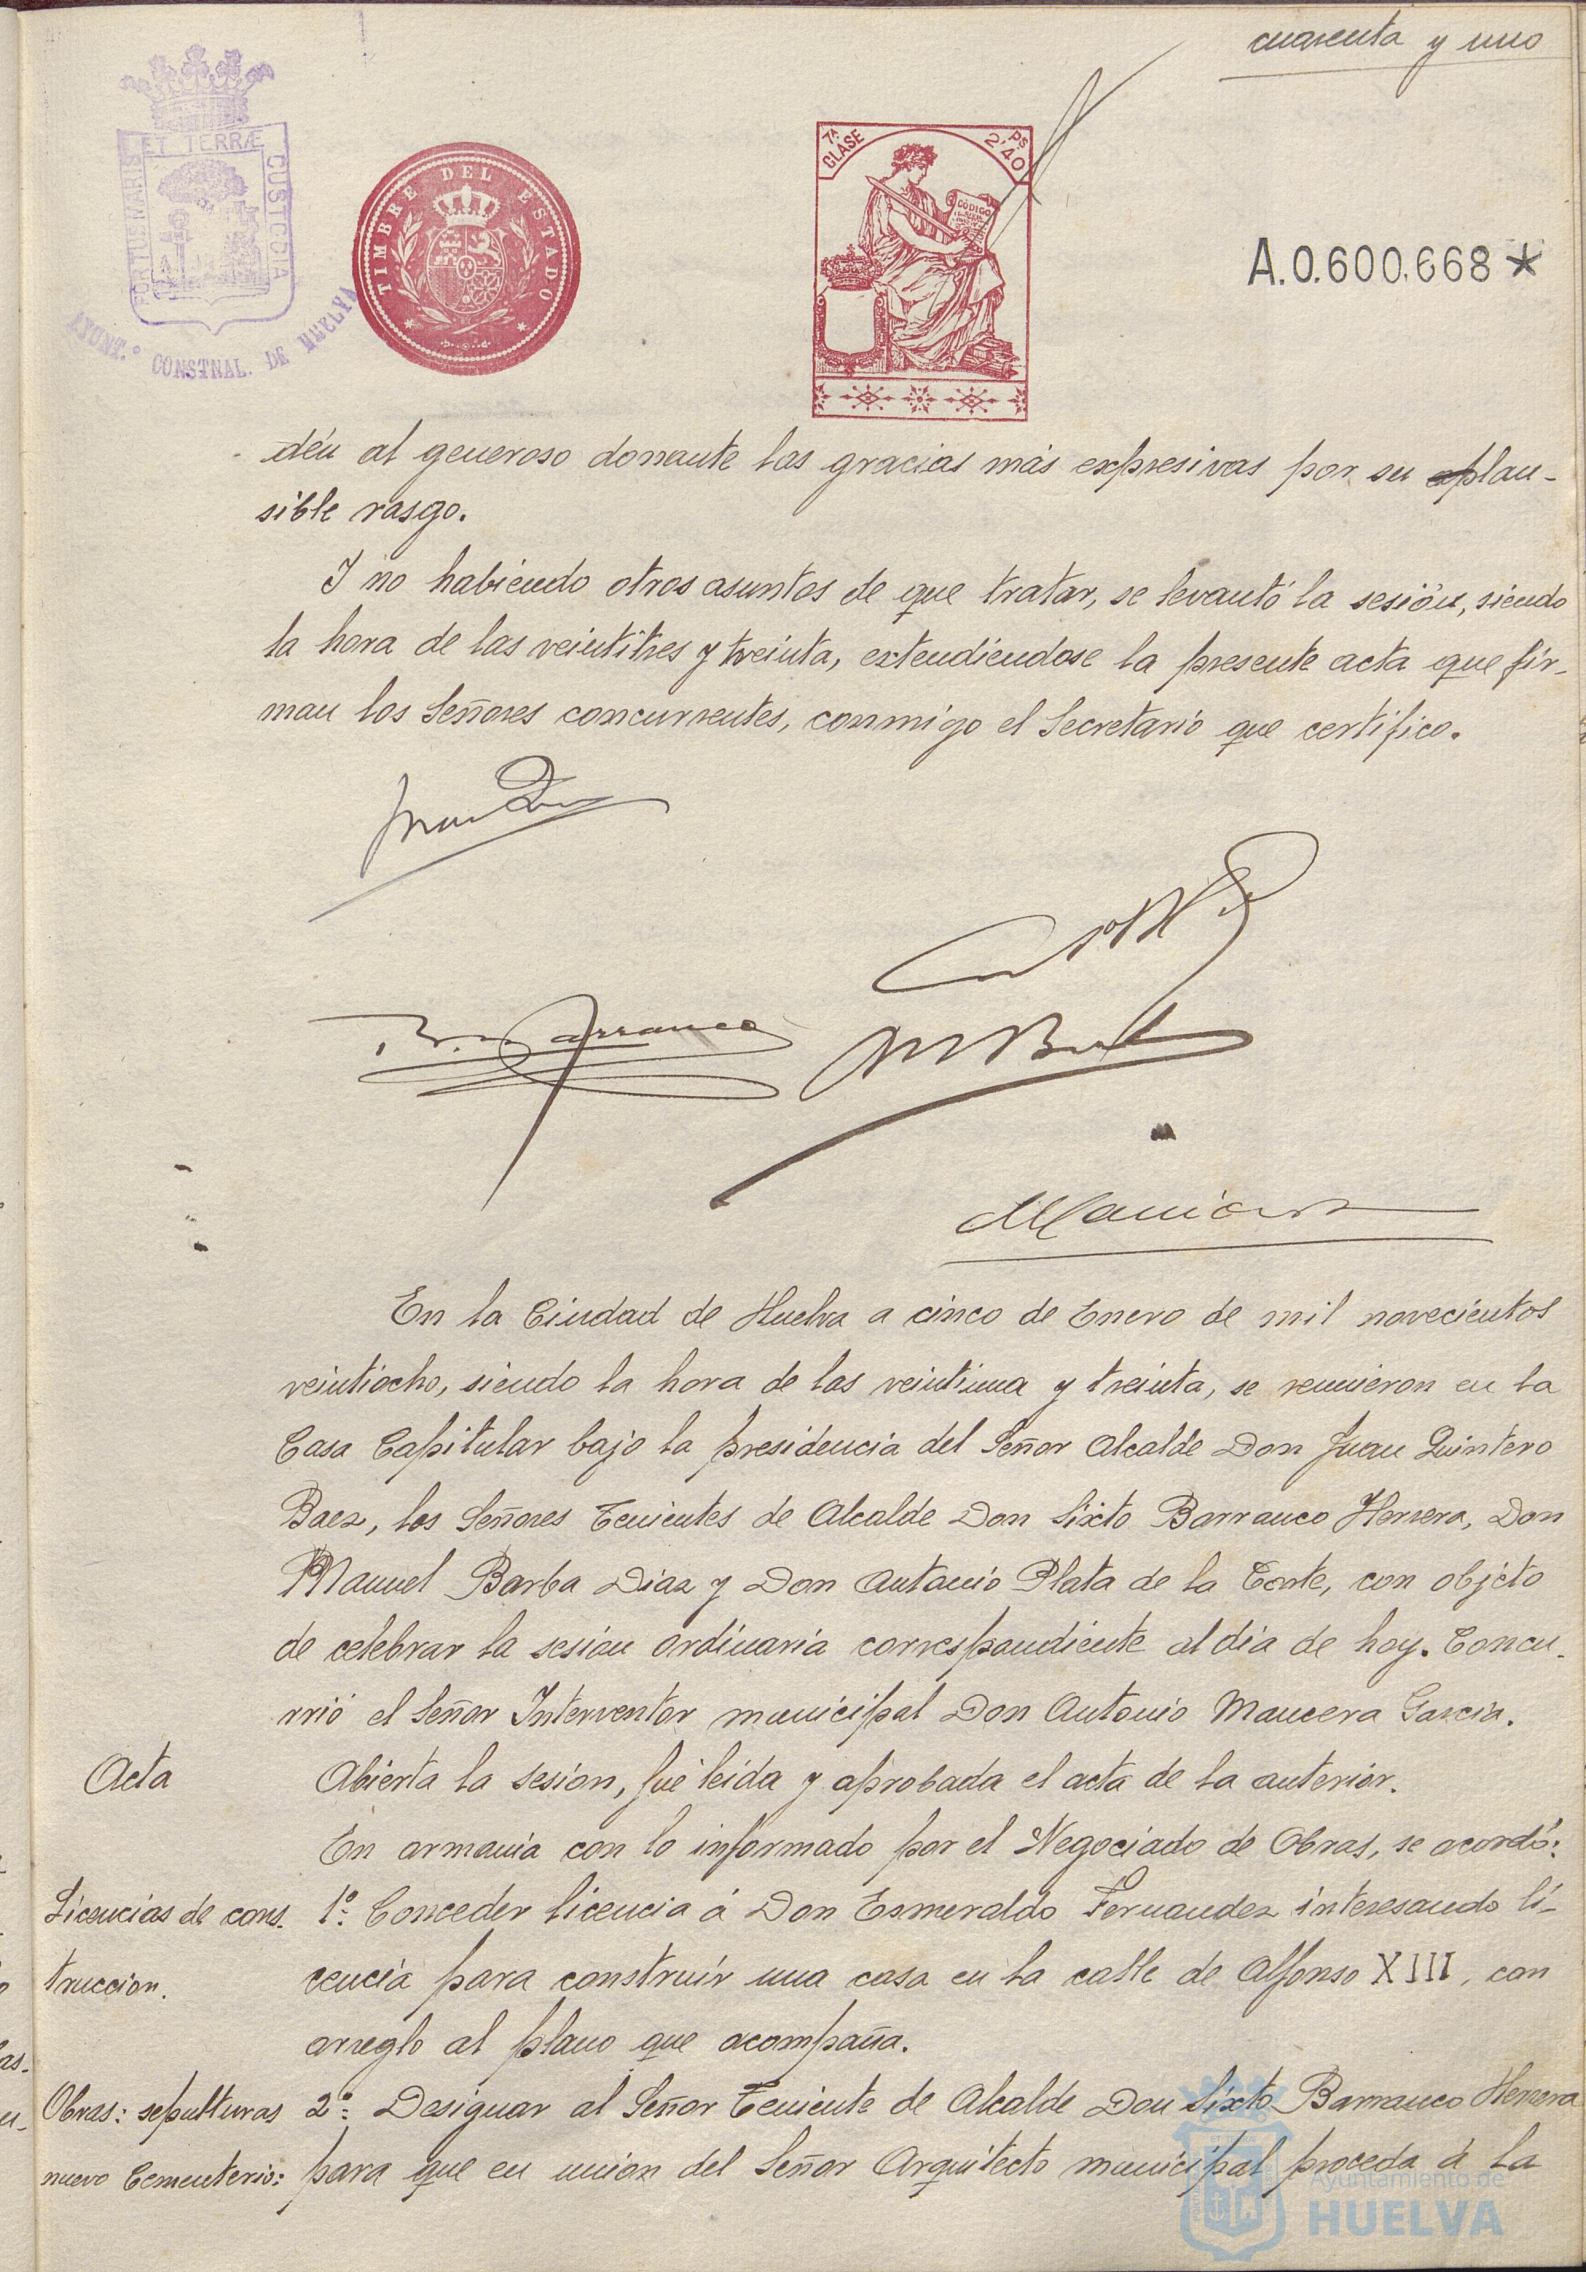 cuarenta y uno
ET TERRÆ
PORTUS MARIS
CUSTODIA
AYUNT.º CONSTNAL. DE HUELVA
TIMBRE DEL ESTADO
7ª CLASE
2'40 PS
CODIGO
A.0.600.668*
dén al generoso donante las gracias más expresivas por su plau-
sible rasgo.
Y no habiendo otros asuntos de que tratar, se levantó la sesión, siendo
la hora de las veintitres y treinta, extendiéndose la presente acta que fir-
man los Señores concurrentes, conmigo el Secretario que certifico.
Barranco
En la Ciudad de Huelva a cinco de Enero de mil novecientos
veintiocho, siendo la hora de las veintiuna y treinta, se reunieron en la
Casa Capitular bajo la presidencia del Señor Alcalde Don Juan Quintero
Baez, los Señores Tenientes de Alcalde Don Sixto Barranco Herrera, Don
Manuel Barba Diaz y Don Antonio Plata de la Corte, con objeto
de celebrar la sesión ordinaria correspondiente al dia de hoy. Concu-
rrió el Señor Interventor municipal Don Antonio Mancera Garcia.
Acta
Abierta la sesion, fué leida y aprobada el acta de la anterior.
En armonia con lo informado por el Negociado de Obras, se acordó:
Licencias de cons-
1º: Conceder licencia á Don Esmeraldo Fernandez interesando li-
truccion.
cencia para construir una casa en la calle de Alfonso XIII, con
arreglo al plano que acompaña.
Obras: sepulturas
2º: Designar al Señor Teniente de Alcalde Don Sixto Barranco Herrera
nuevo Cementerio:
para que en union del Señor Arquitecto municipal proceda á la
Ayuntamiento de
HUELVA